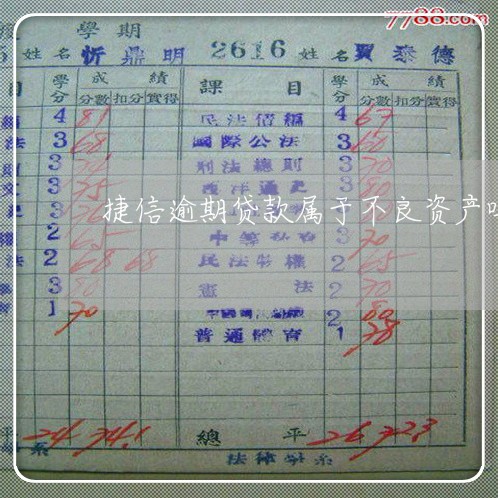 7788.com
學期
姓名 忻鼎明 2616 姓名 賈泰德
目 學分 成績 課目 學分 成績
分數 扣分 實得 分數 扣分 實得
4 81 民法債編 4 67
法 3 68 國際公法 3 60
3 刑法總則 3 70
3 75 西洋通史 3 80
捷信逾期贷款属于不良资产
2 65 3 70
法 2 68 68 民法物權 2 65
3 80 憲法 2 70
1 70 2 80
普通體育 1 78
平 24 74.1 總平 26 72.3
系 法律學系